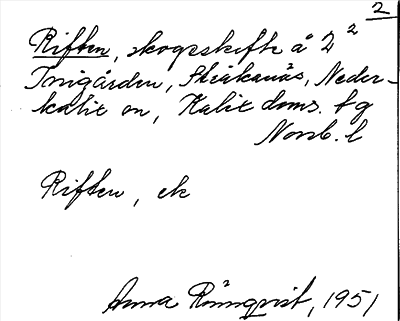 2
Riften, skogsskifte å 2²
Tonigården, Stråkanäs, Neder-
kalix sn, Kalix doms. tg
Norrb. l
Riften, ek
Anna Rönnqvist, 1951